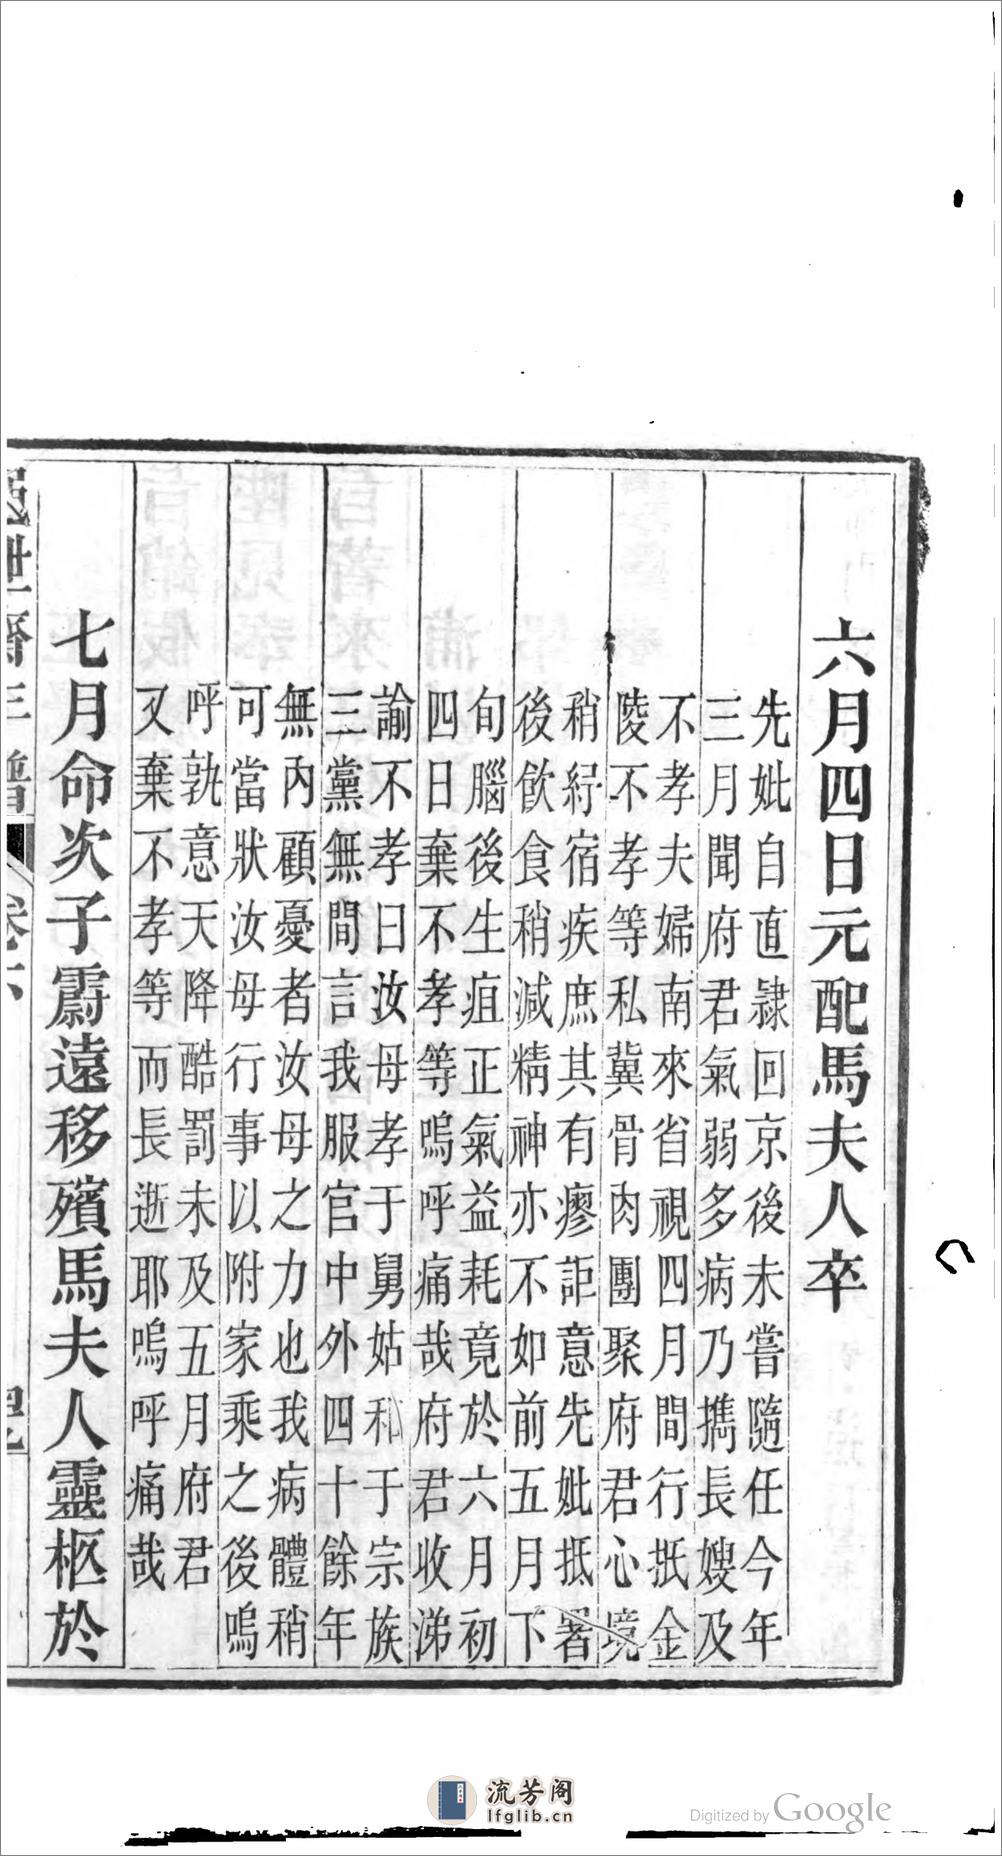 六月四日元配馬夫人卒
先妣自直隸回京後未嘗隨任今年
三月聞府君氣弱多病乃攜長嫂及
不孝夫婦南來省視四月間行抵金
陵不孝等私冀骨肉團聚府君心境
稍紓宿疾庶其有瘳詎意先妣抵署
後飲食稍減精神亦不如前五月下
旬腦後生疽正氣益耗竟於六月初
四日棄不孝等嗚呼痛哉府君收涕
諭不孝曰汝母孝于舅姑和于宗族
三黨無間言我服官中外四十餘年
無內顧憂者汝母之力也我病體稍
可當狀汝母行事以附家乘之後嗚
呼孰意天降酷罰未及五月府君
又棄不孝等而長逝耶嗚呼痛哉
七月命次子霨遠移殯馬夫人靈柩於
年譜 卷六
流芳阁
lfglib.cn
Digitized by Google